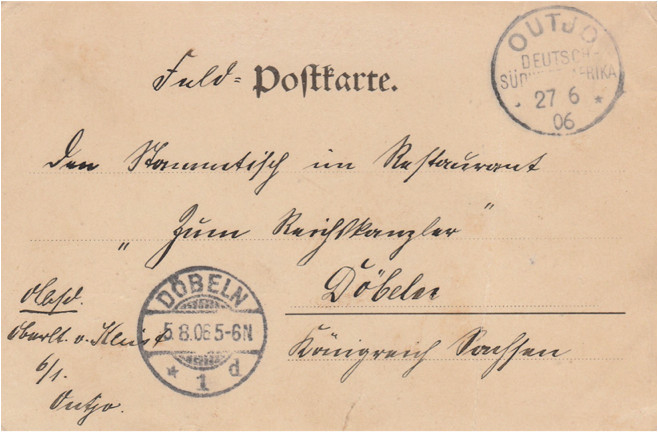 Feld=Postkarte.
OUTJO
DEUTSCH-
SÜDWESTAFRIKA
27 6
06
Den Stammtisch im Restaurant
"Zum Reichskanzler"
Döbeln
Königreich Sachsen
DÖBELN
5.8.06 5-6N
* 1 d
Absd.
Oberlt. v. Kleist
6/1.
Outjo.